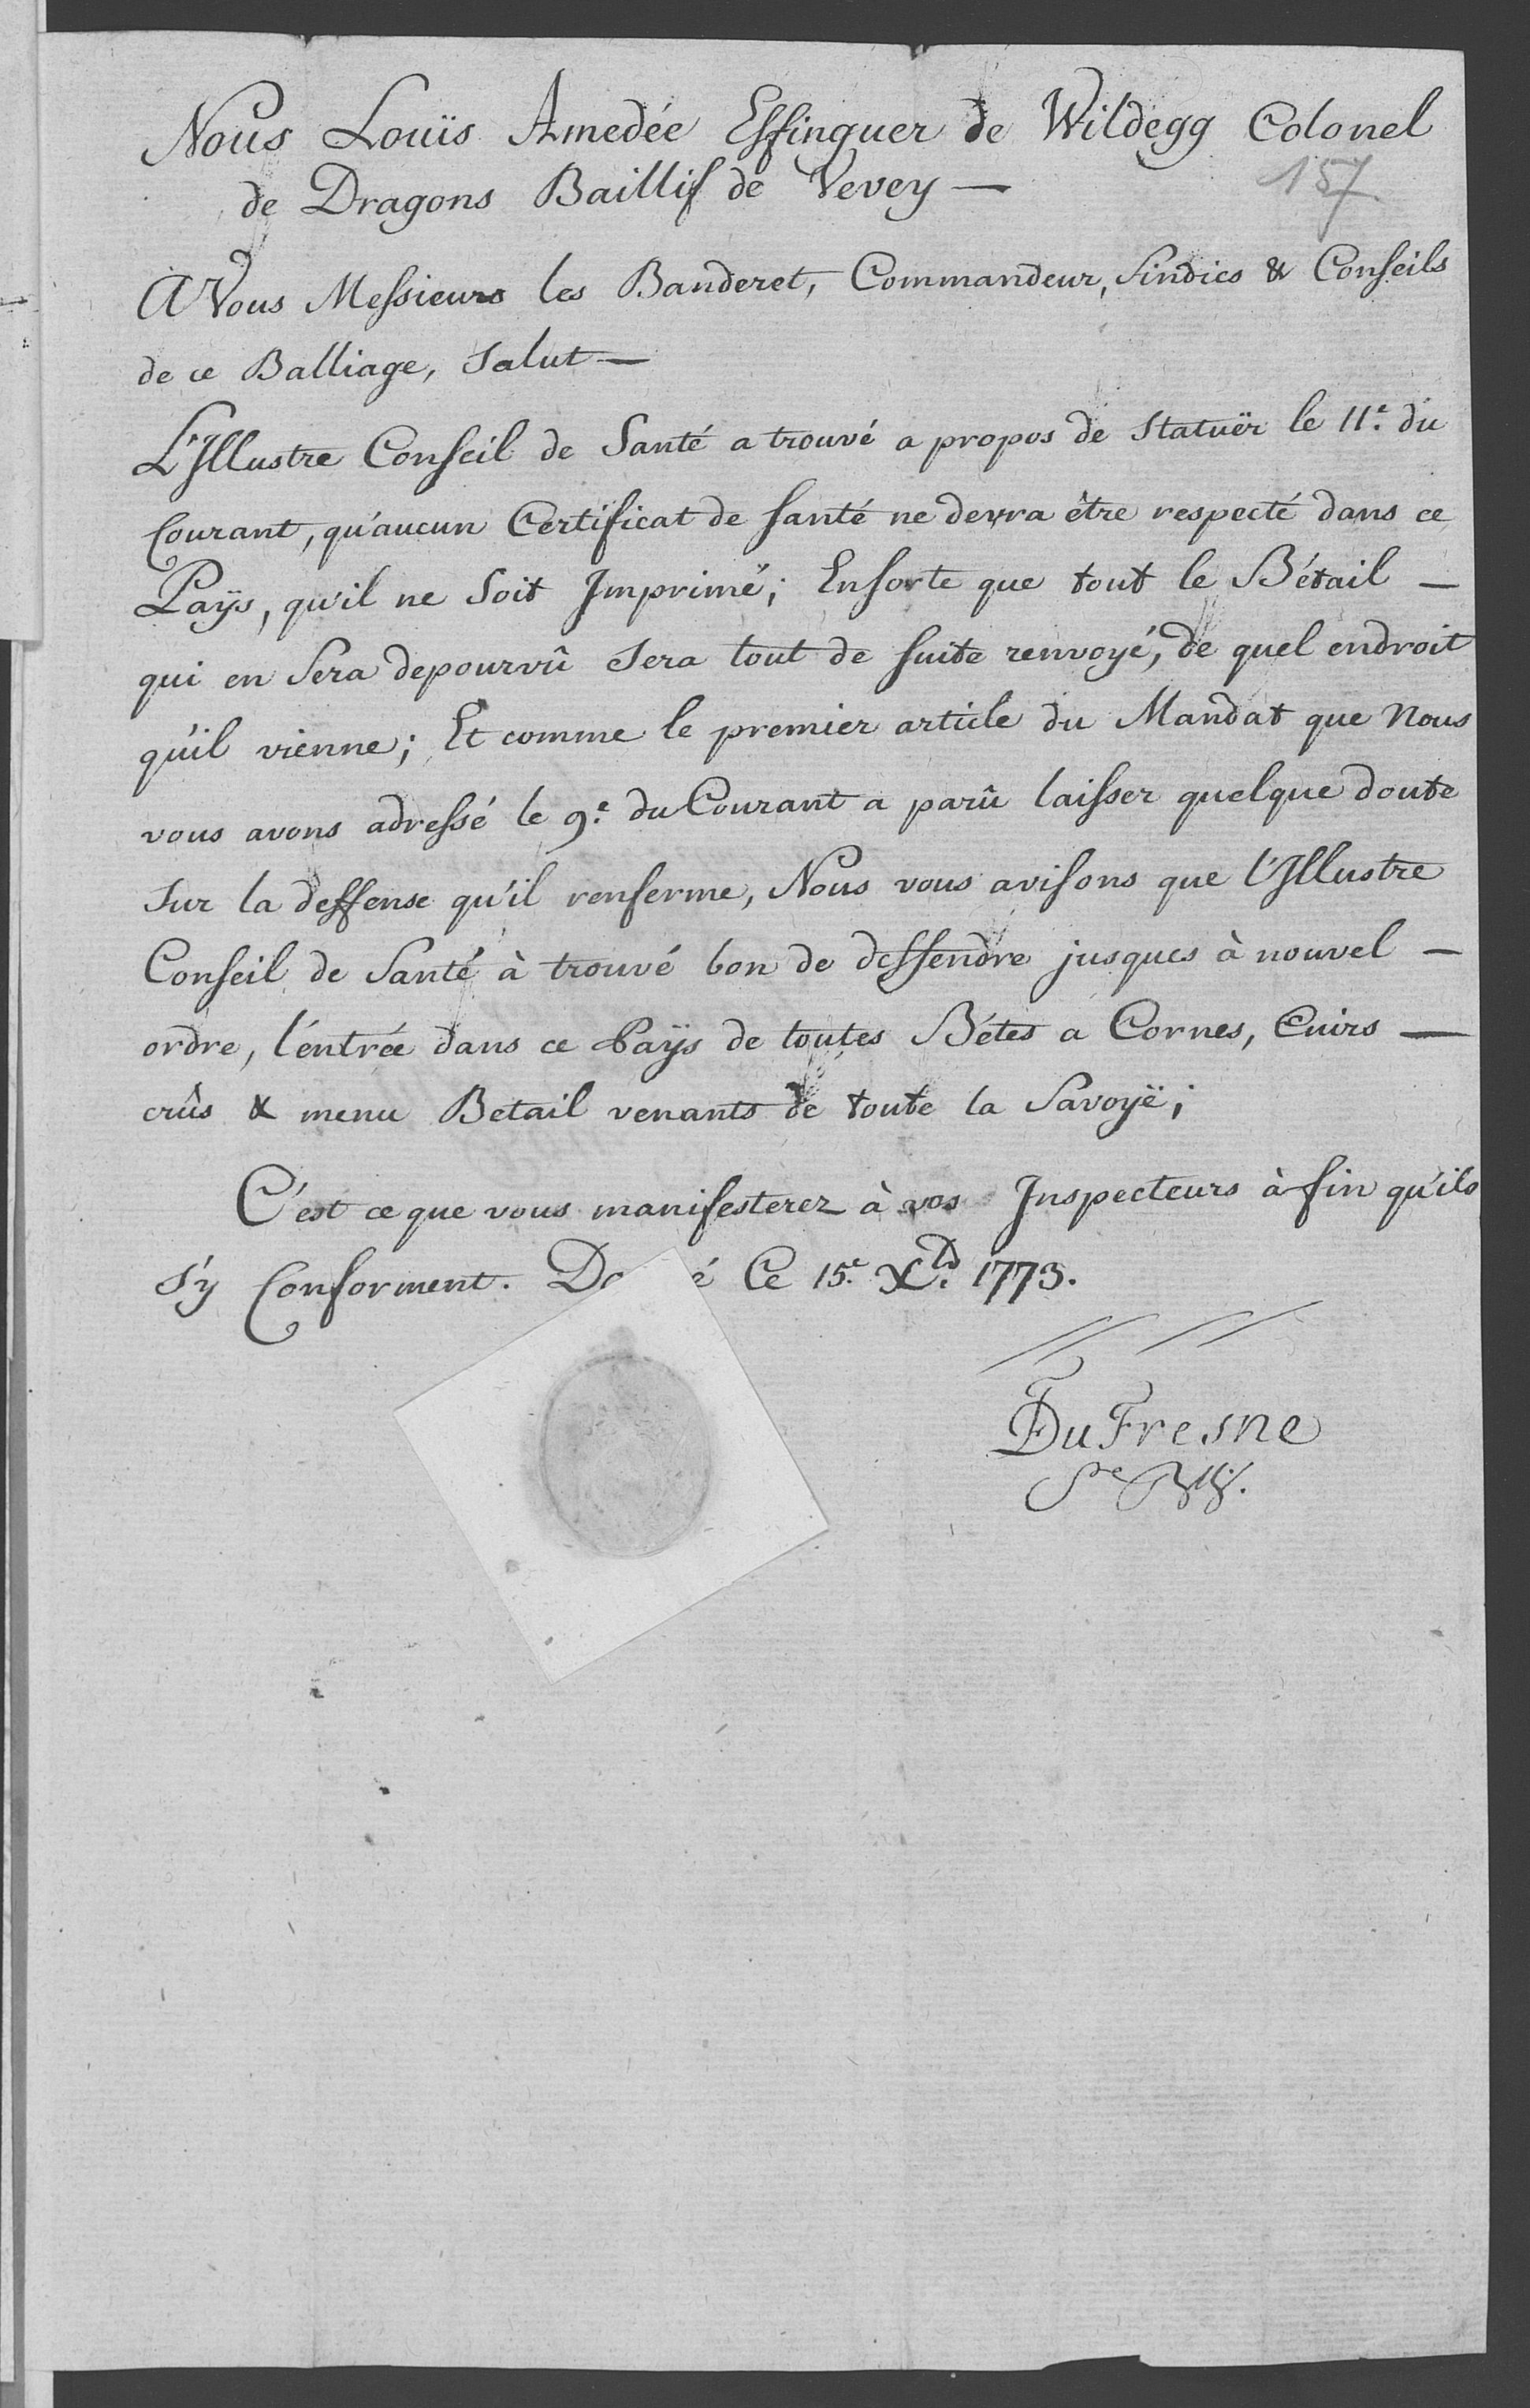 Nous Louïs Amedée Effinguer de Wildegg Colonel
de Dragons Baillif de Vevey —
157
A Vous Messieurs les Banderet, Commandeur, Sindics & Conseils
de ce Balliage, Salut —
L'Illustre Conseil de Santé a trouvé a propos de Statuër le 11.e du
Courant, qu'aucun Certificat de santé ne devra être respecté dans ce
Païs, qu'il ne Soit Imprimé; Ensorte que tout le Bétail —
qui en Sera depourvû Sera tout de suite renvoyé, de quel endroit
qu'il vienne; Et comme le premier article du Mandat que Nous
vous avons adressé le 9.e du Courant a parû laisser quelque doute
Sur la deffense qu'il renferme, Nous vous avisons que l'Illustre
Conseil de Santé à trouvé bon de deffendre jusques à nouvel —
ordre, l'éntrée dans ce Païs de toutes Bétes a Cornes, Cuirs —
crûs & menu Betail venants de toute la Savoÿe;
C'est ce que vous manifesterez à vos Inspecteurs à fin qu'ils
s'y Conforment. Do é Ce 15.e X.b 1773.
DuFresne